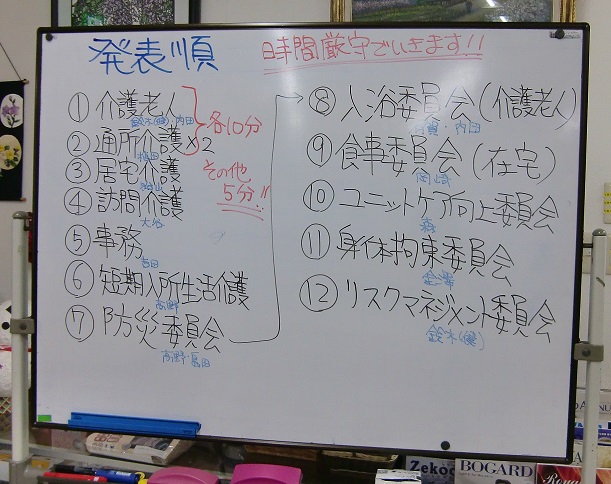 発表順
時間厳守でいきます!!
① 介護老人
鈴木(健)・内田
② 通所介護×2
各10分
③ 居宅介護
その他
5分!!
④ 訪問介護
大谷
⑤ 事務
⑥ 短期入所生活介護
高野
⑦ 防災委員会
高野・
⑧ 入浴委員会(介護老人)
・内田
⑨ 食事委員会(在宅)
岡崎
⑩ ユニットケア向上委員会
森
⑪ 身体拘束委員会
⑫ リスクマネジメント委員会
鈴木(健)
Zekoo
BOGARD